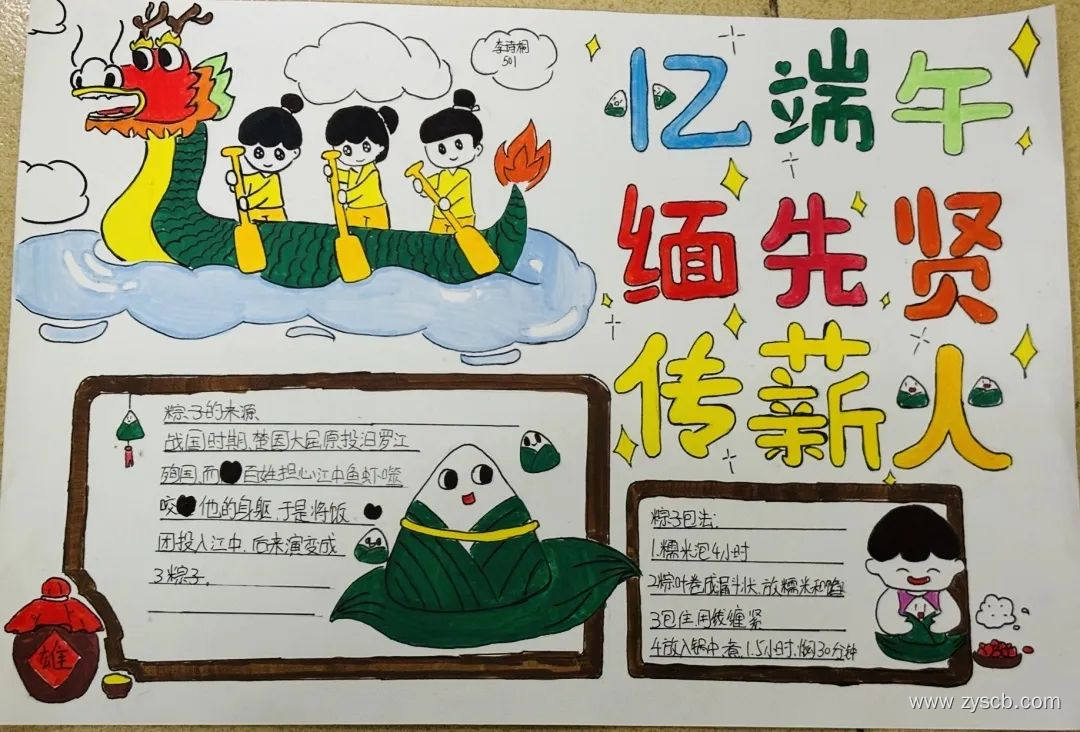 李诗桐
501
忆端午
缅先贤
传薪人
粽子的来源
战国时期,楚国大臣屈原投汨罗江
殉国,而百姓担心江中鱼虾噬
咬他的身躯,于是将饭
团投入江中,后来演变成
了粽子。
雄
粽子包法:
1.糯米泡4小时
2粽叶卷成漏斗状,放糯米和馅
3包住用线缠紧
4放入锅中,煮1.5小时,焖30分钟
www.zyscb.com